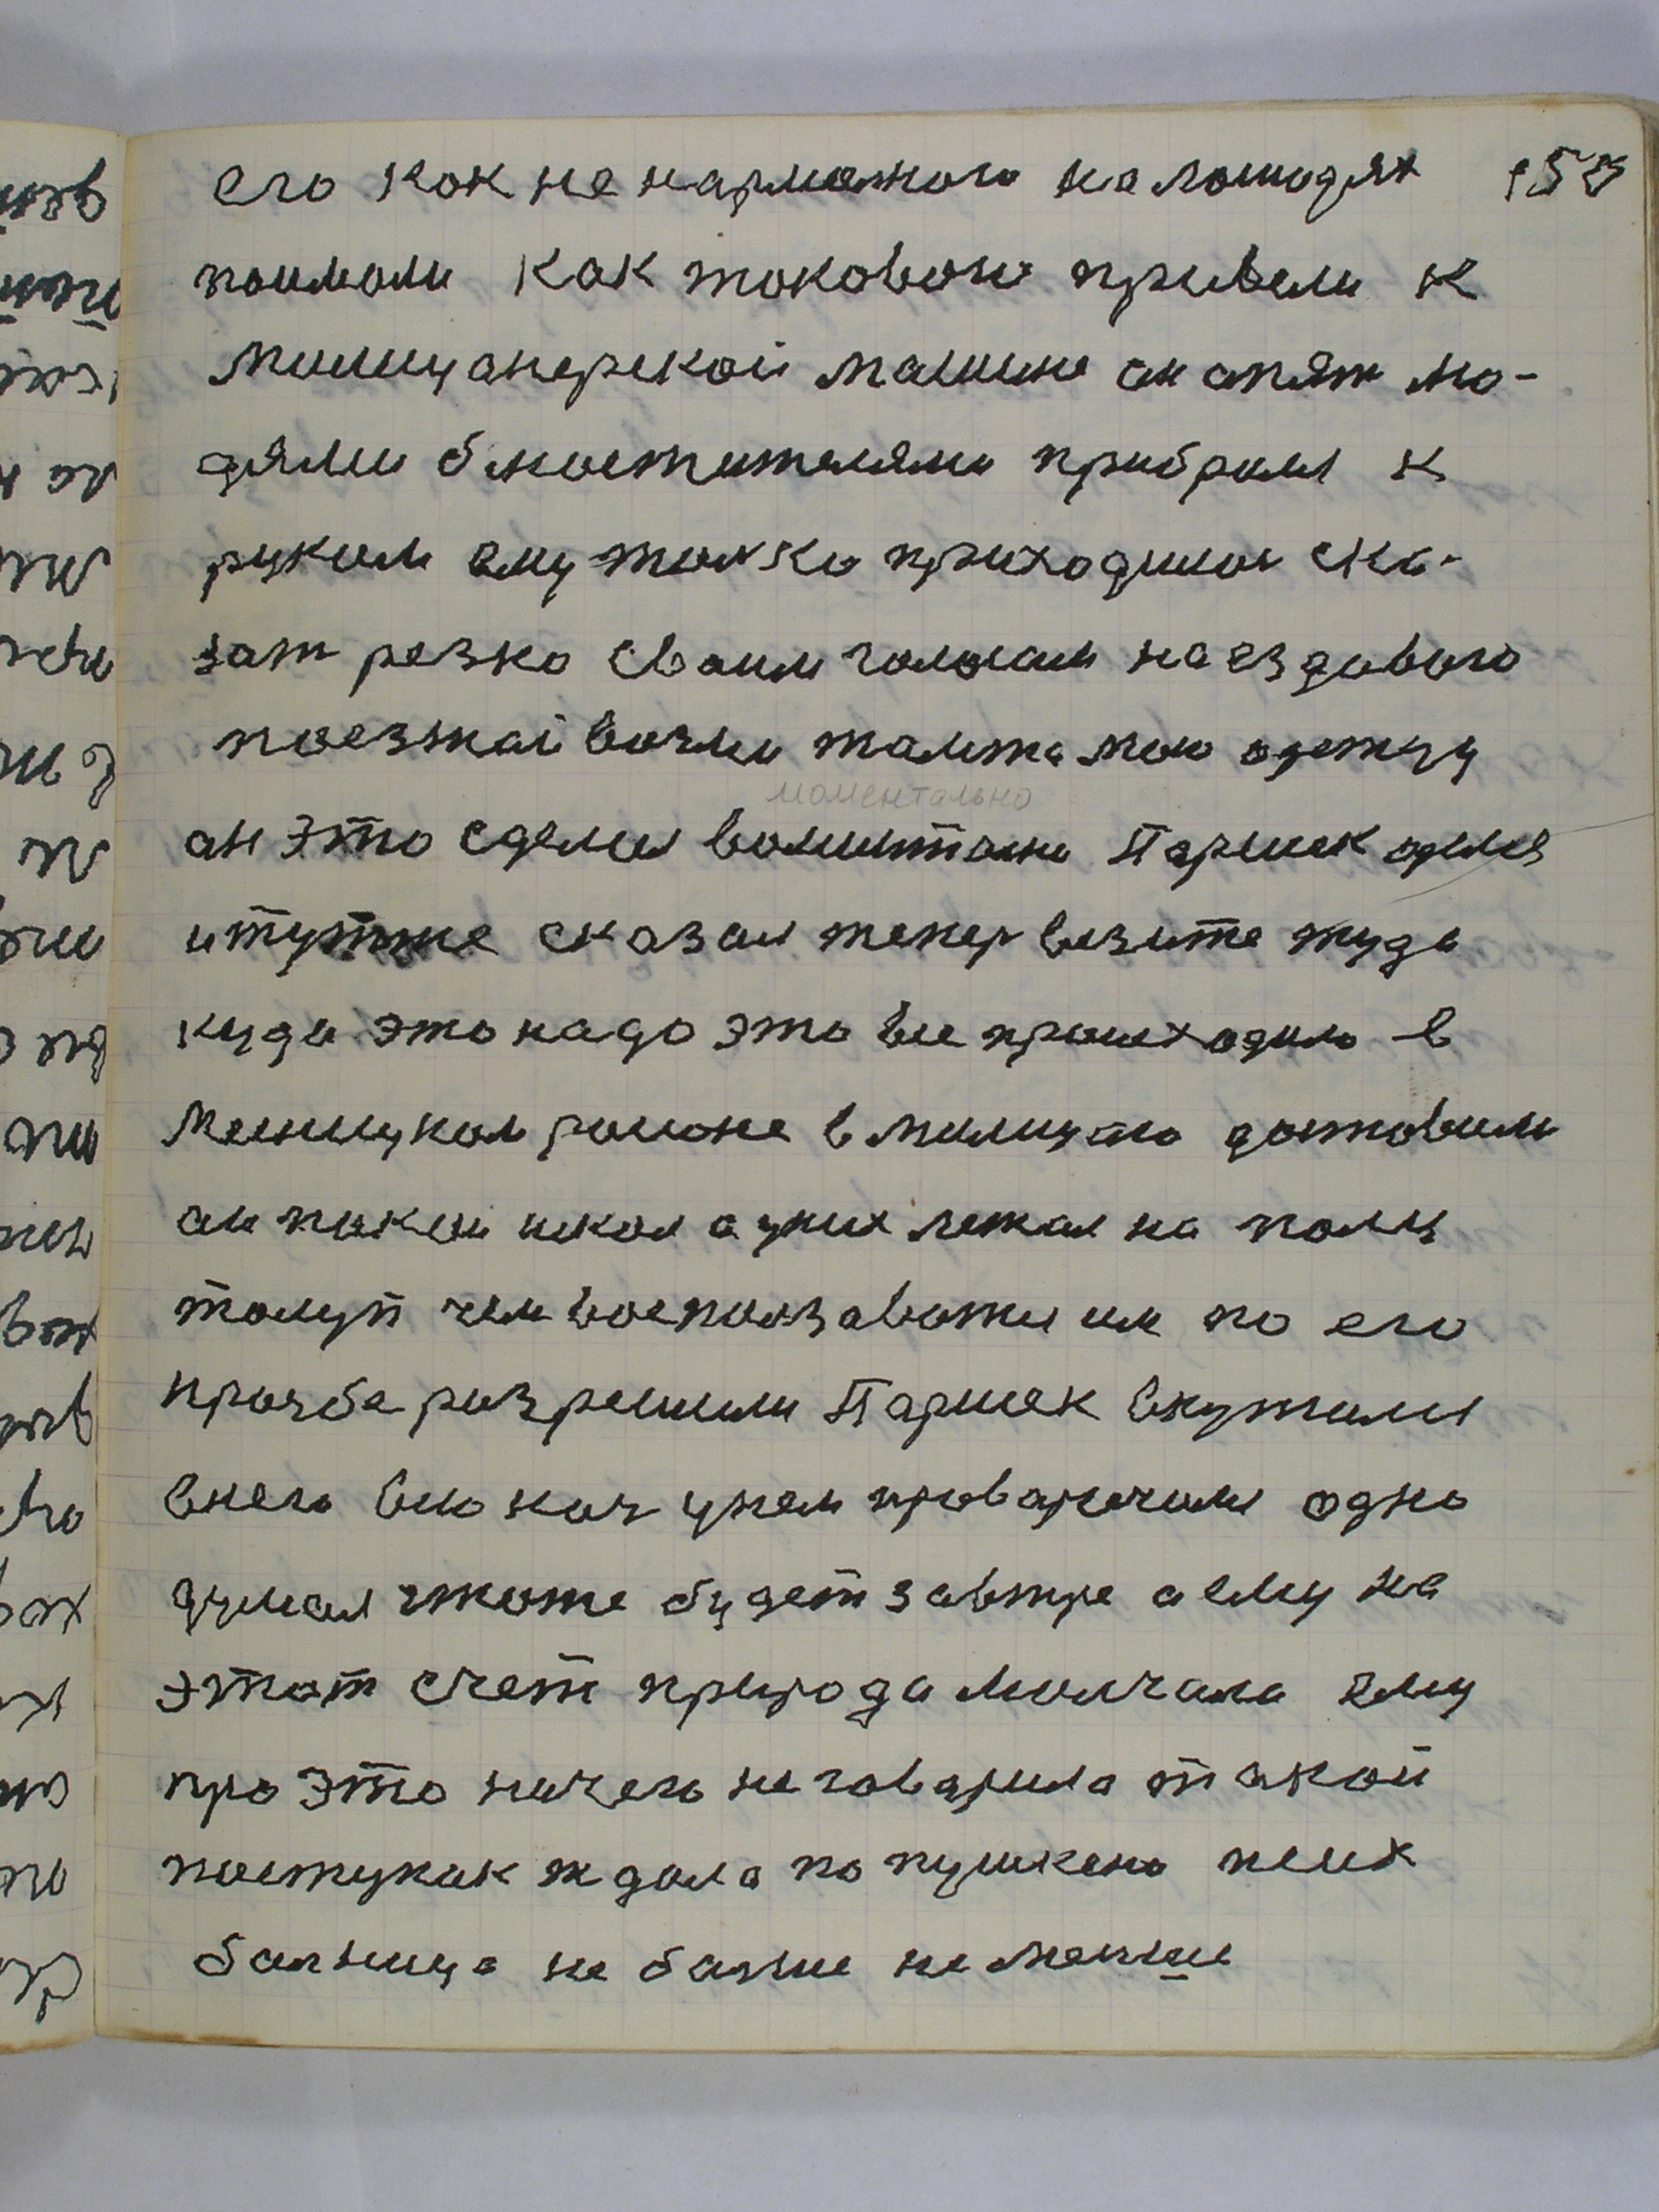 его как не нармалнога на лошадях 158
поимали как таковои привели к
милицанерской машине ан апят лю-
дями блюстителями прибрали к
рукам ему толко приходилос ска-
зат резко своим голосам на ездавого
поезжай возми там же мою одежду
моментально
ан это сделал Паршек оделся
и тут же сказал тепер везите туда
куда это надо это все происходило в
районе в милицию доставили
ан пакой искал а у них лежал на полу
толуп чем воспользаватся им по его
прозбе разрешили Паршек вкутался
в него всю ноч у нем праварочался одно
думал чтоже будет завтре а ему на
этот счет природа молчала ему
про это ничего не гаварила такой
поступак ждала по пушкено псих
балница не балше не менше